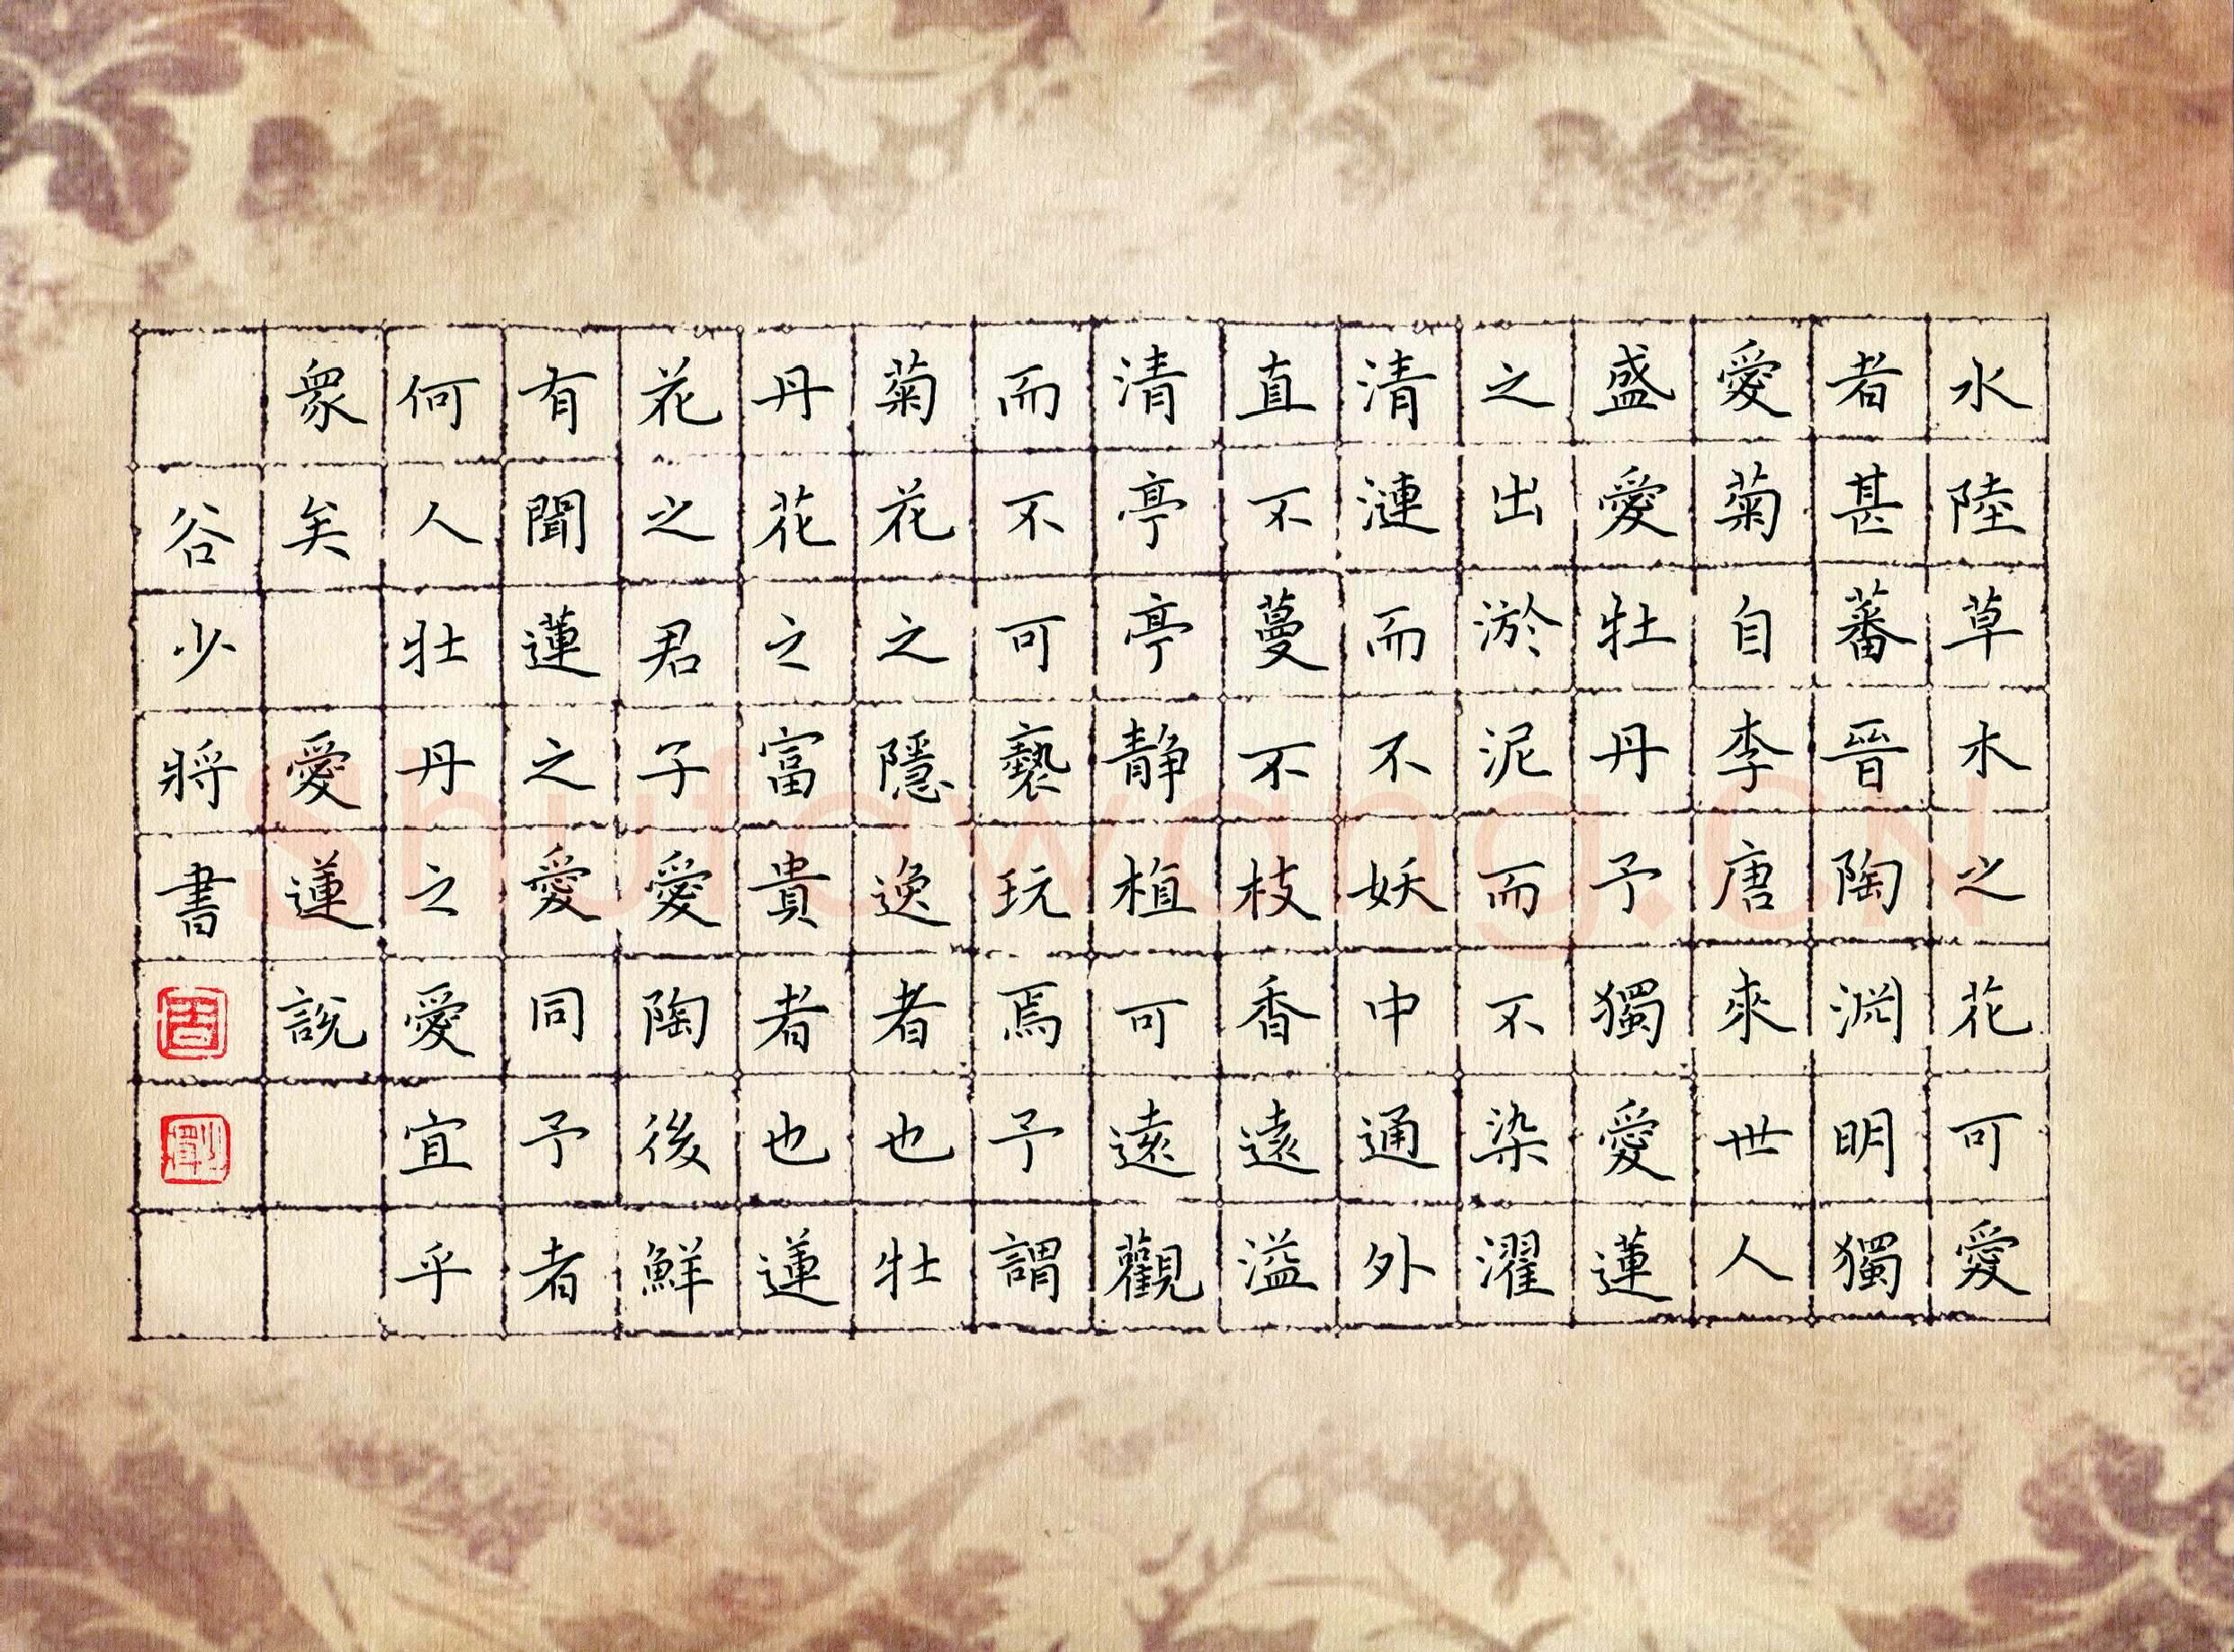 水陸草木之花可愛
者甚蕃晉陶淵明獨
愛菊自李唐來世人
盛愛牡丹予獨愛蓮
之出淤泥而不染濯
清漣而不妖中通外
直不蔓不枝香遠溢
清亭亭静植可遠觀
而不可褻玩焉予謂
菊花之隱逸者也牡
丹花之富貴者也蓮
花之君子愛陶後鮮
有聞蓮之愛同予者
何人牡丹之愛宜乎
衆矣 愛蓮説
谷少將書
Shufawang.CN